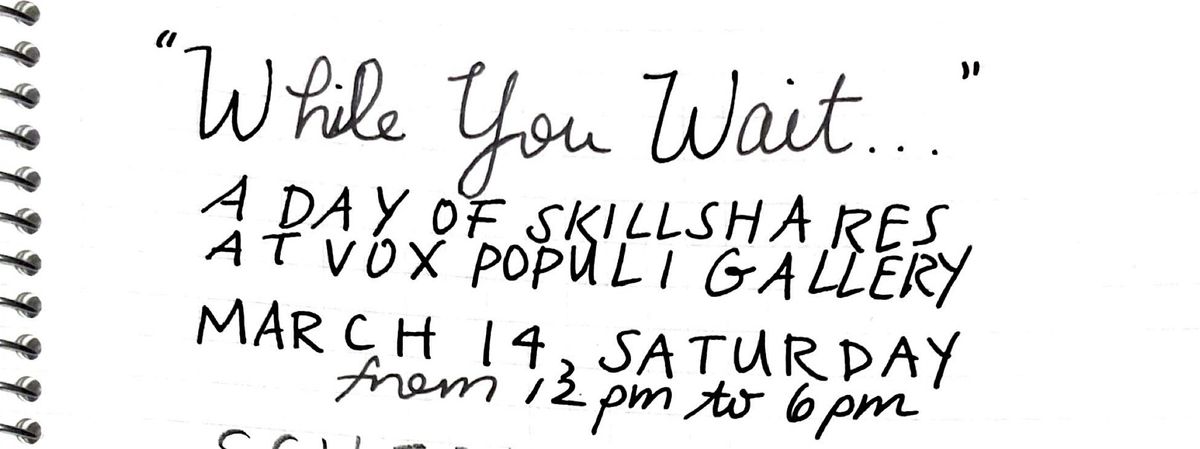 "While You Wait..."
A DAY OF SKILLSHARES
AT VOX POPULI GALLERY
MARCH 14, SATURDAY
from 12 pm to 6 pm